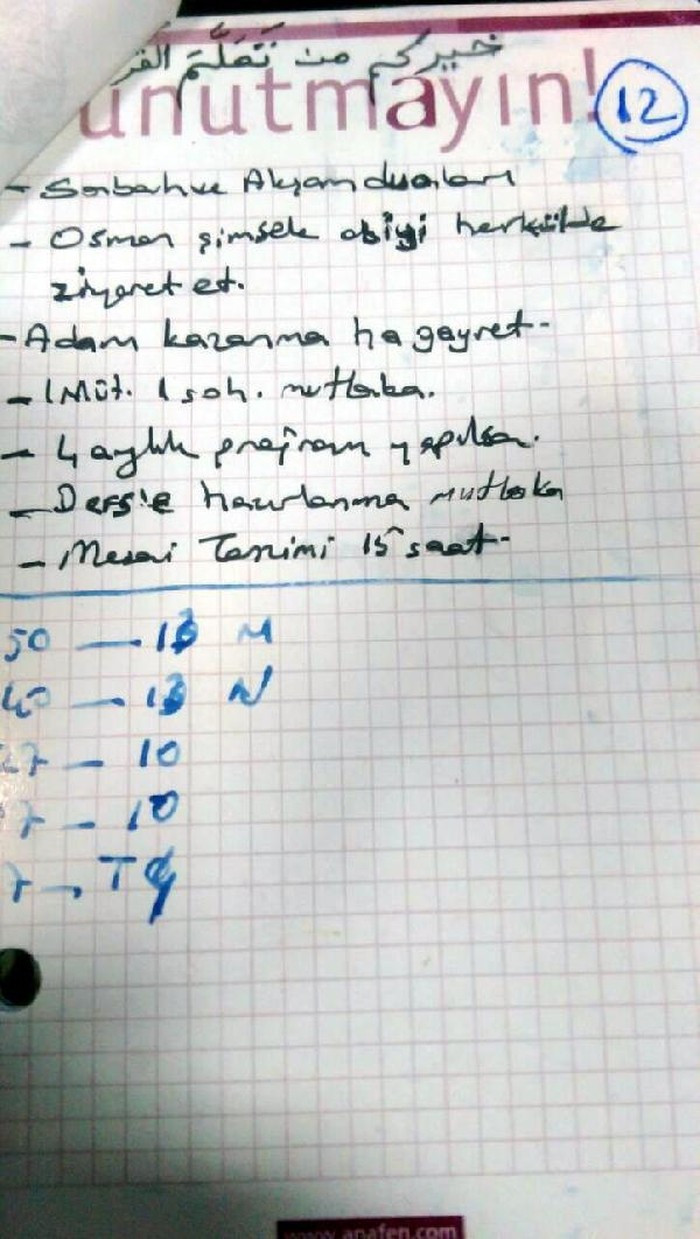 خيركم من تَعَلَّمَ القر
unutmayın!
12
- Sabah ve Akşam duaları
- Osman şimşek abiyi herkülde
ziyaret et.
- Adam kazanma ha gayret-
- 1 Müt. 1 soh. mutlaka.
- 4 aylık program yapılsa.
- Derse hazırlanma mutlaka
- Mesai Tanzimi 15 saat-
50 — 13 M
40 — 13 N
27 — 10
7 — 10
7 —
www.anafen.com